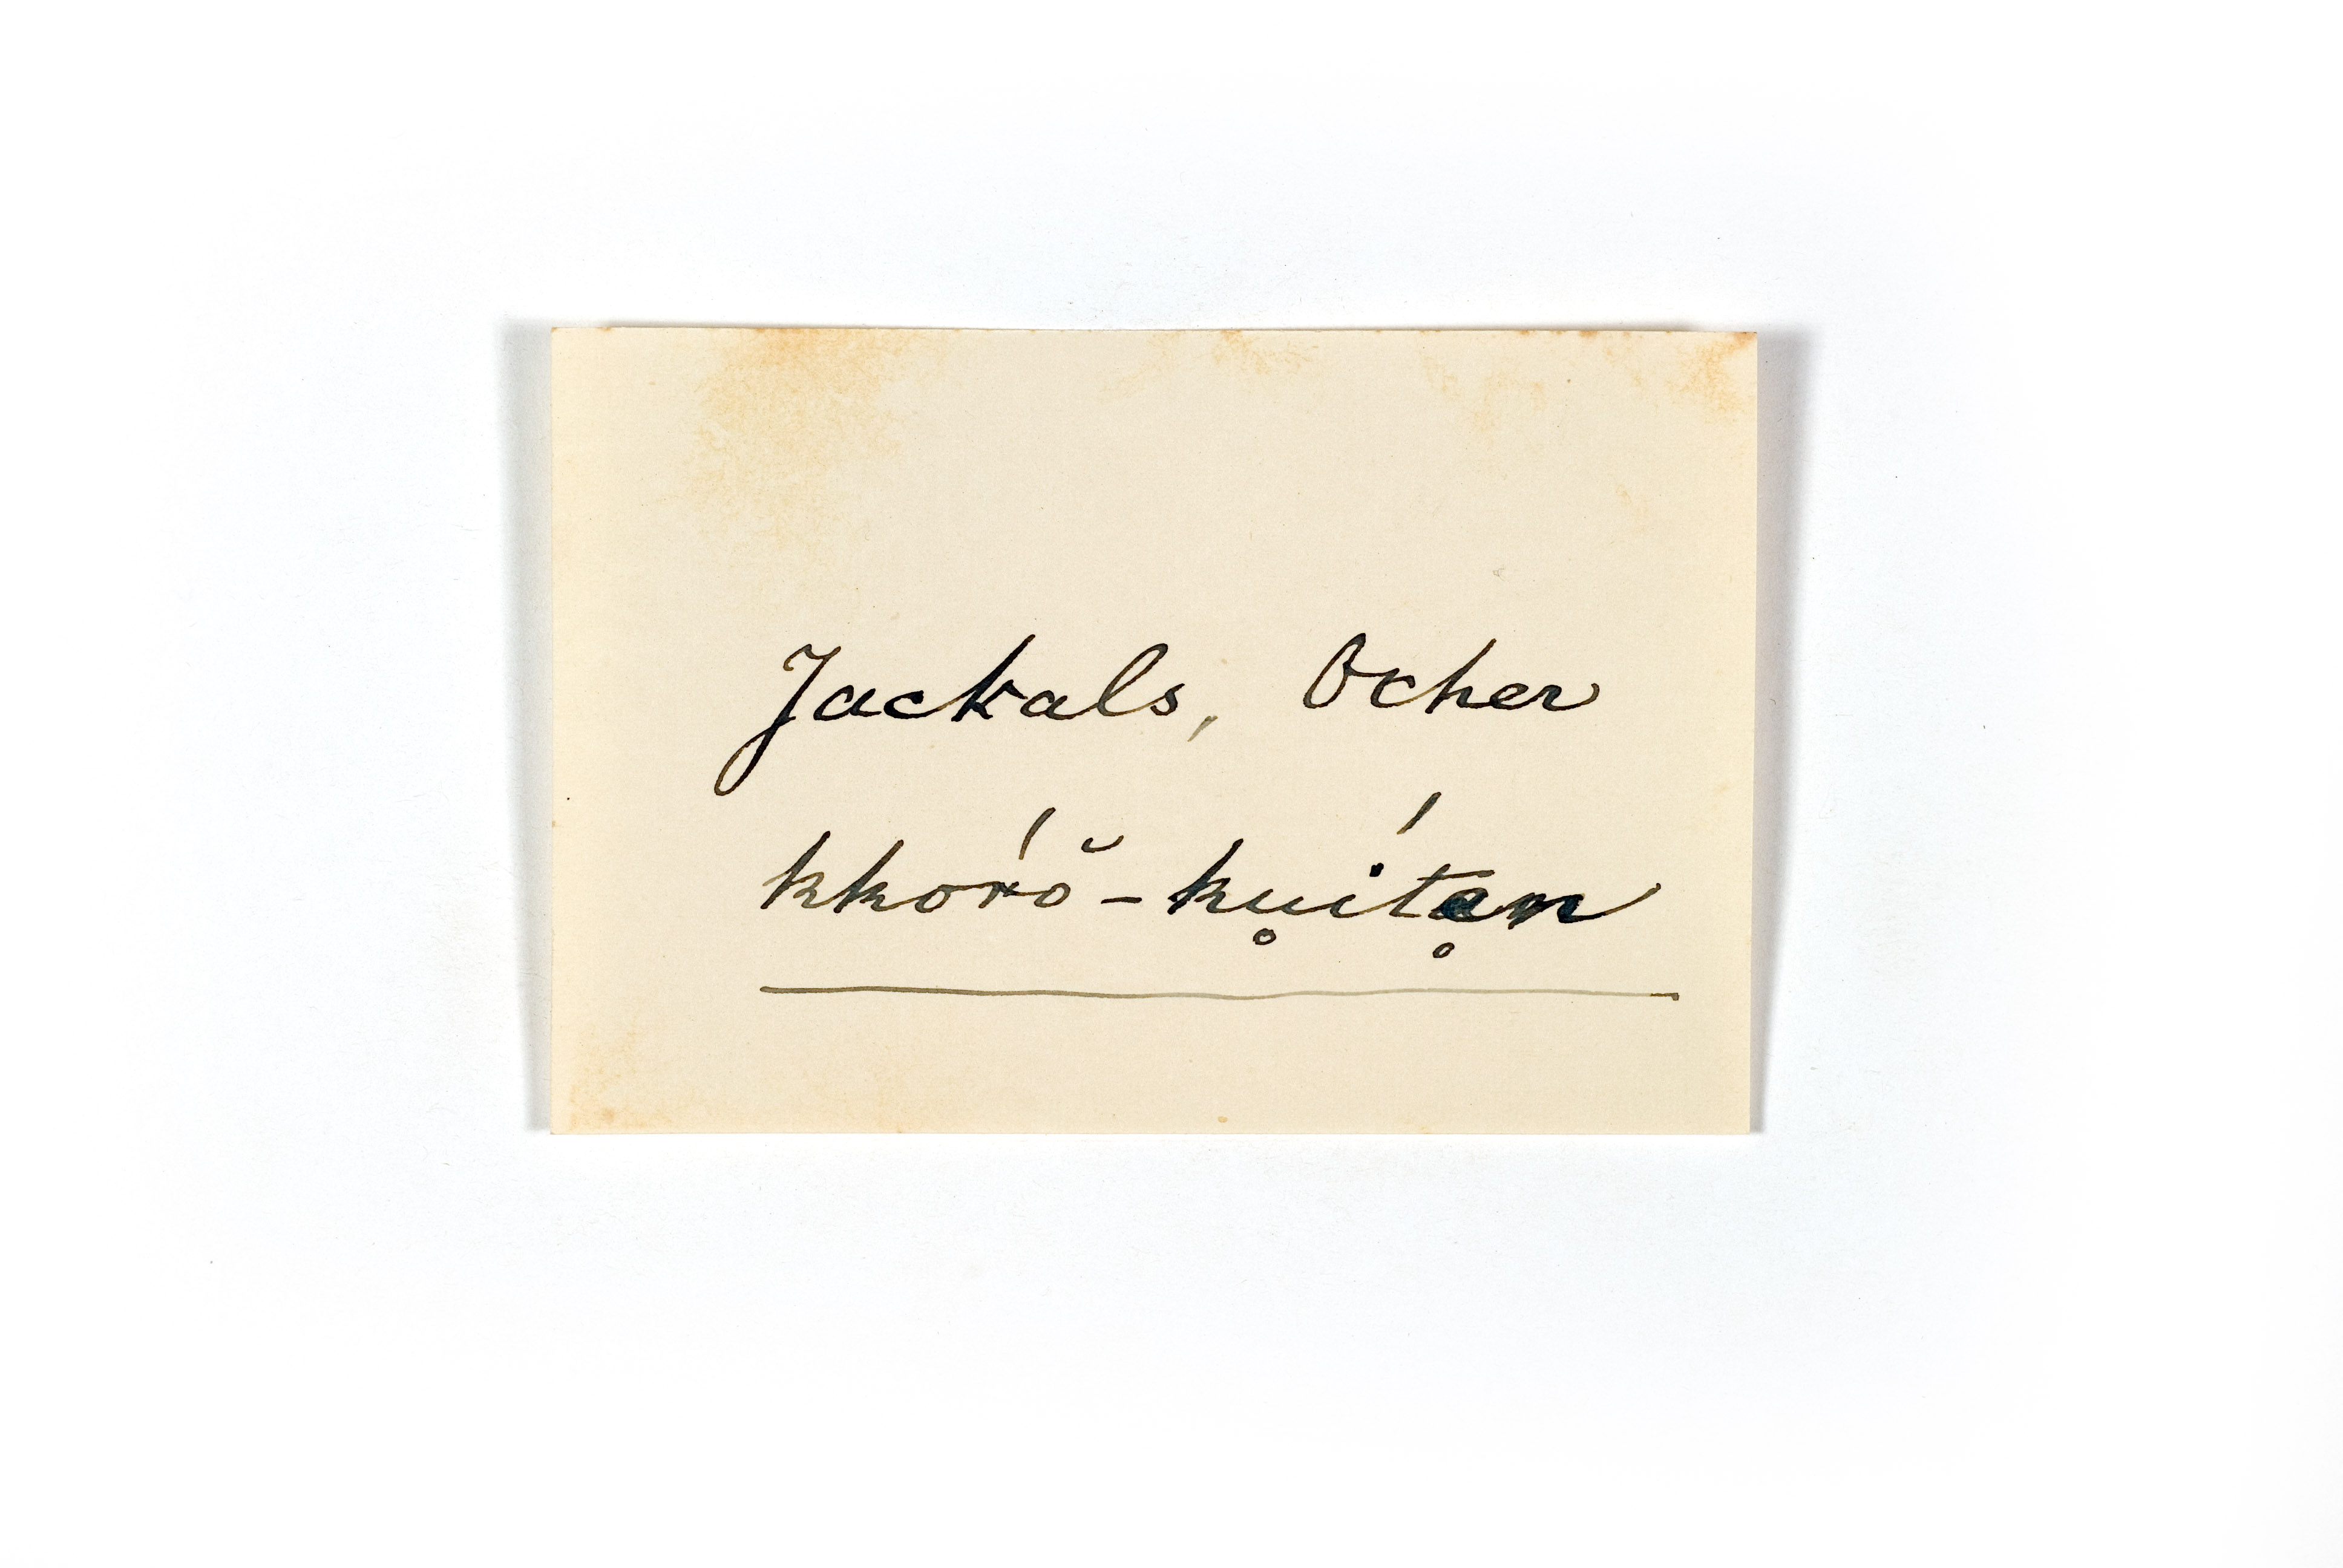 Jackals, Ocher
kkóró̆-ku̥ítḁn